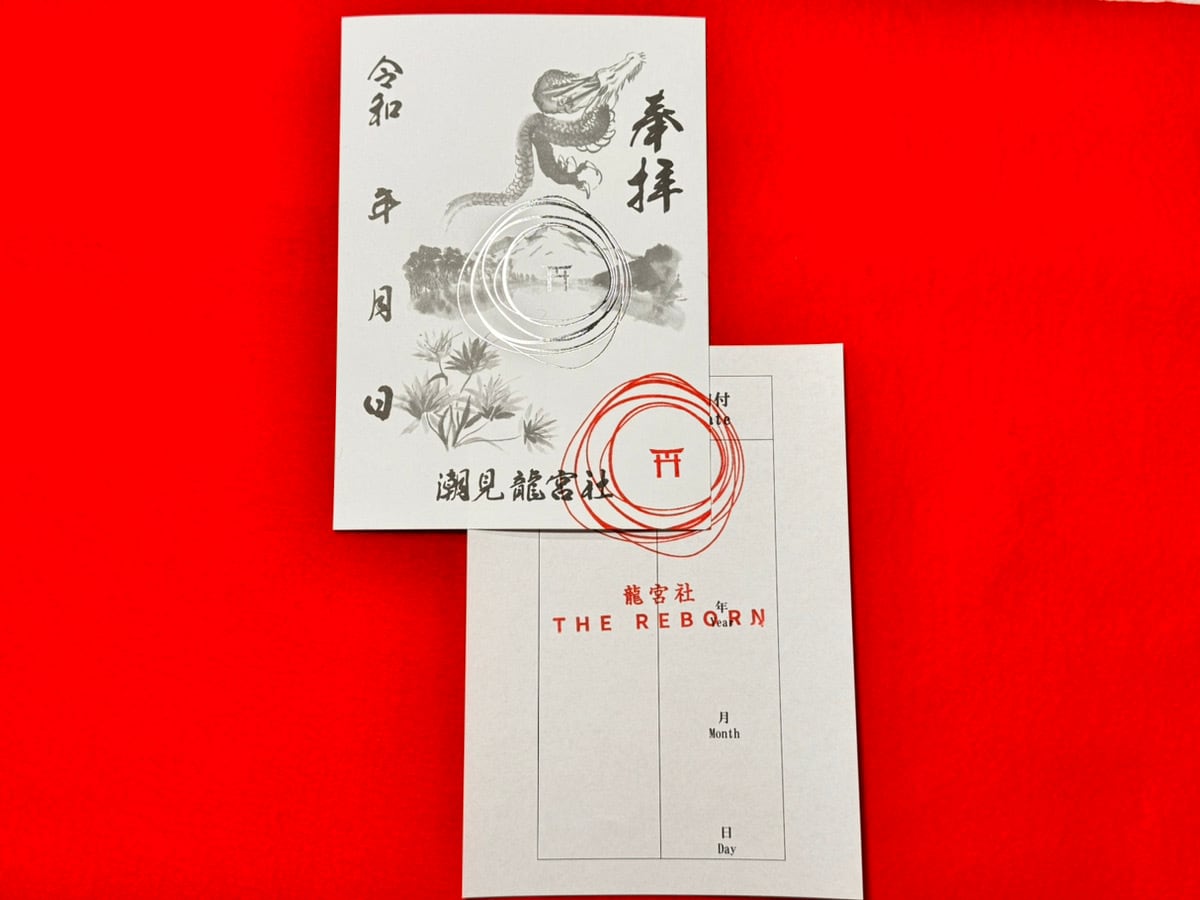 奉拝
令和 年 月 日
潮見龍宮社
付
te
龍宮社
THE REBORN
年
Year
月
Month
日
Day